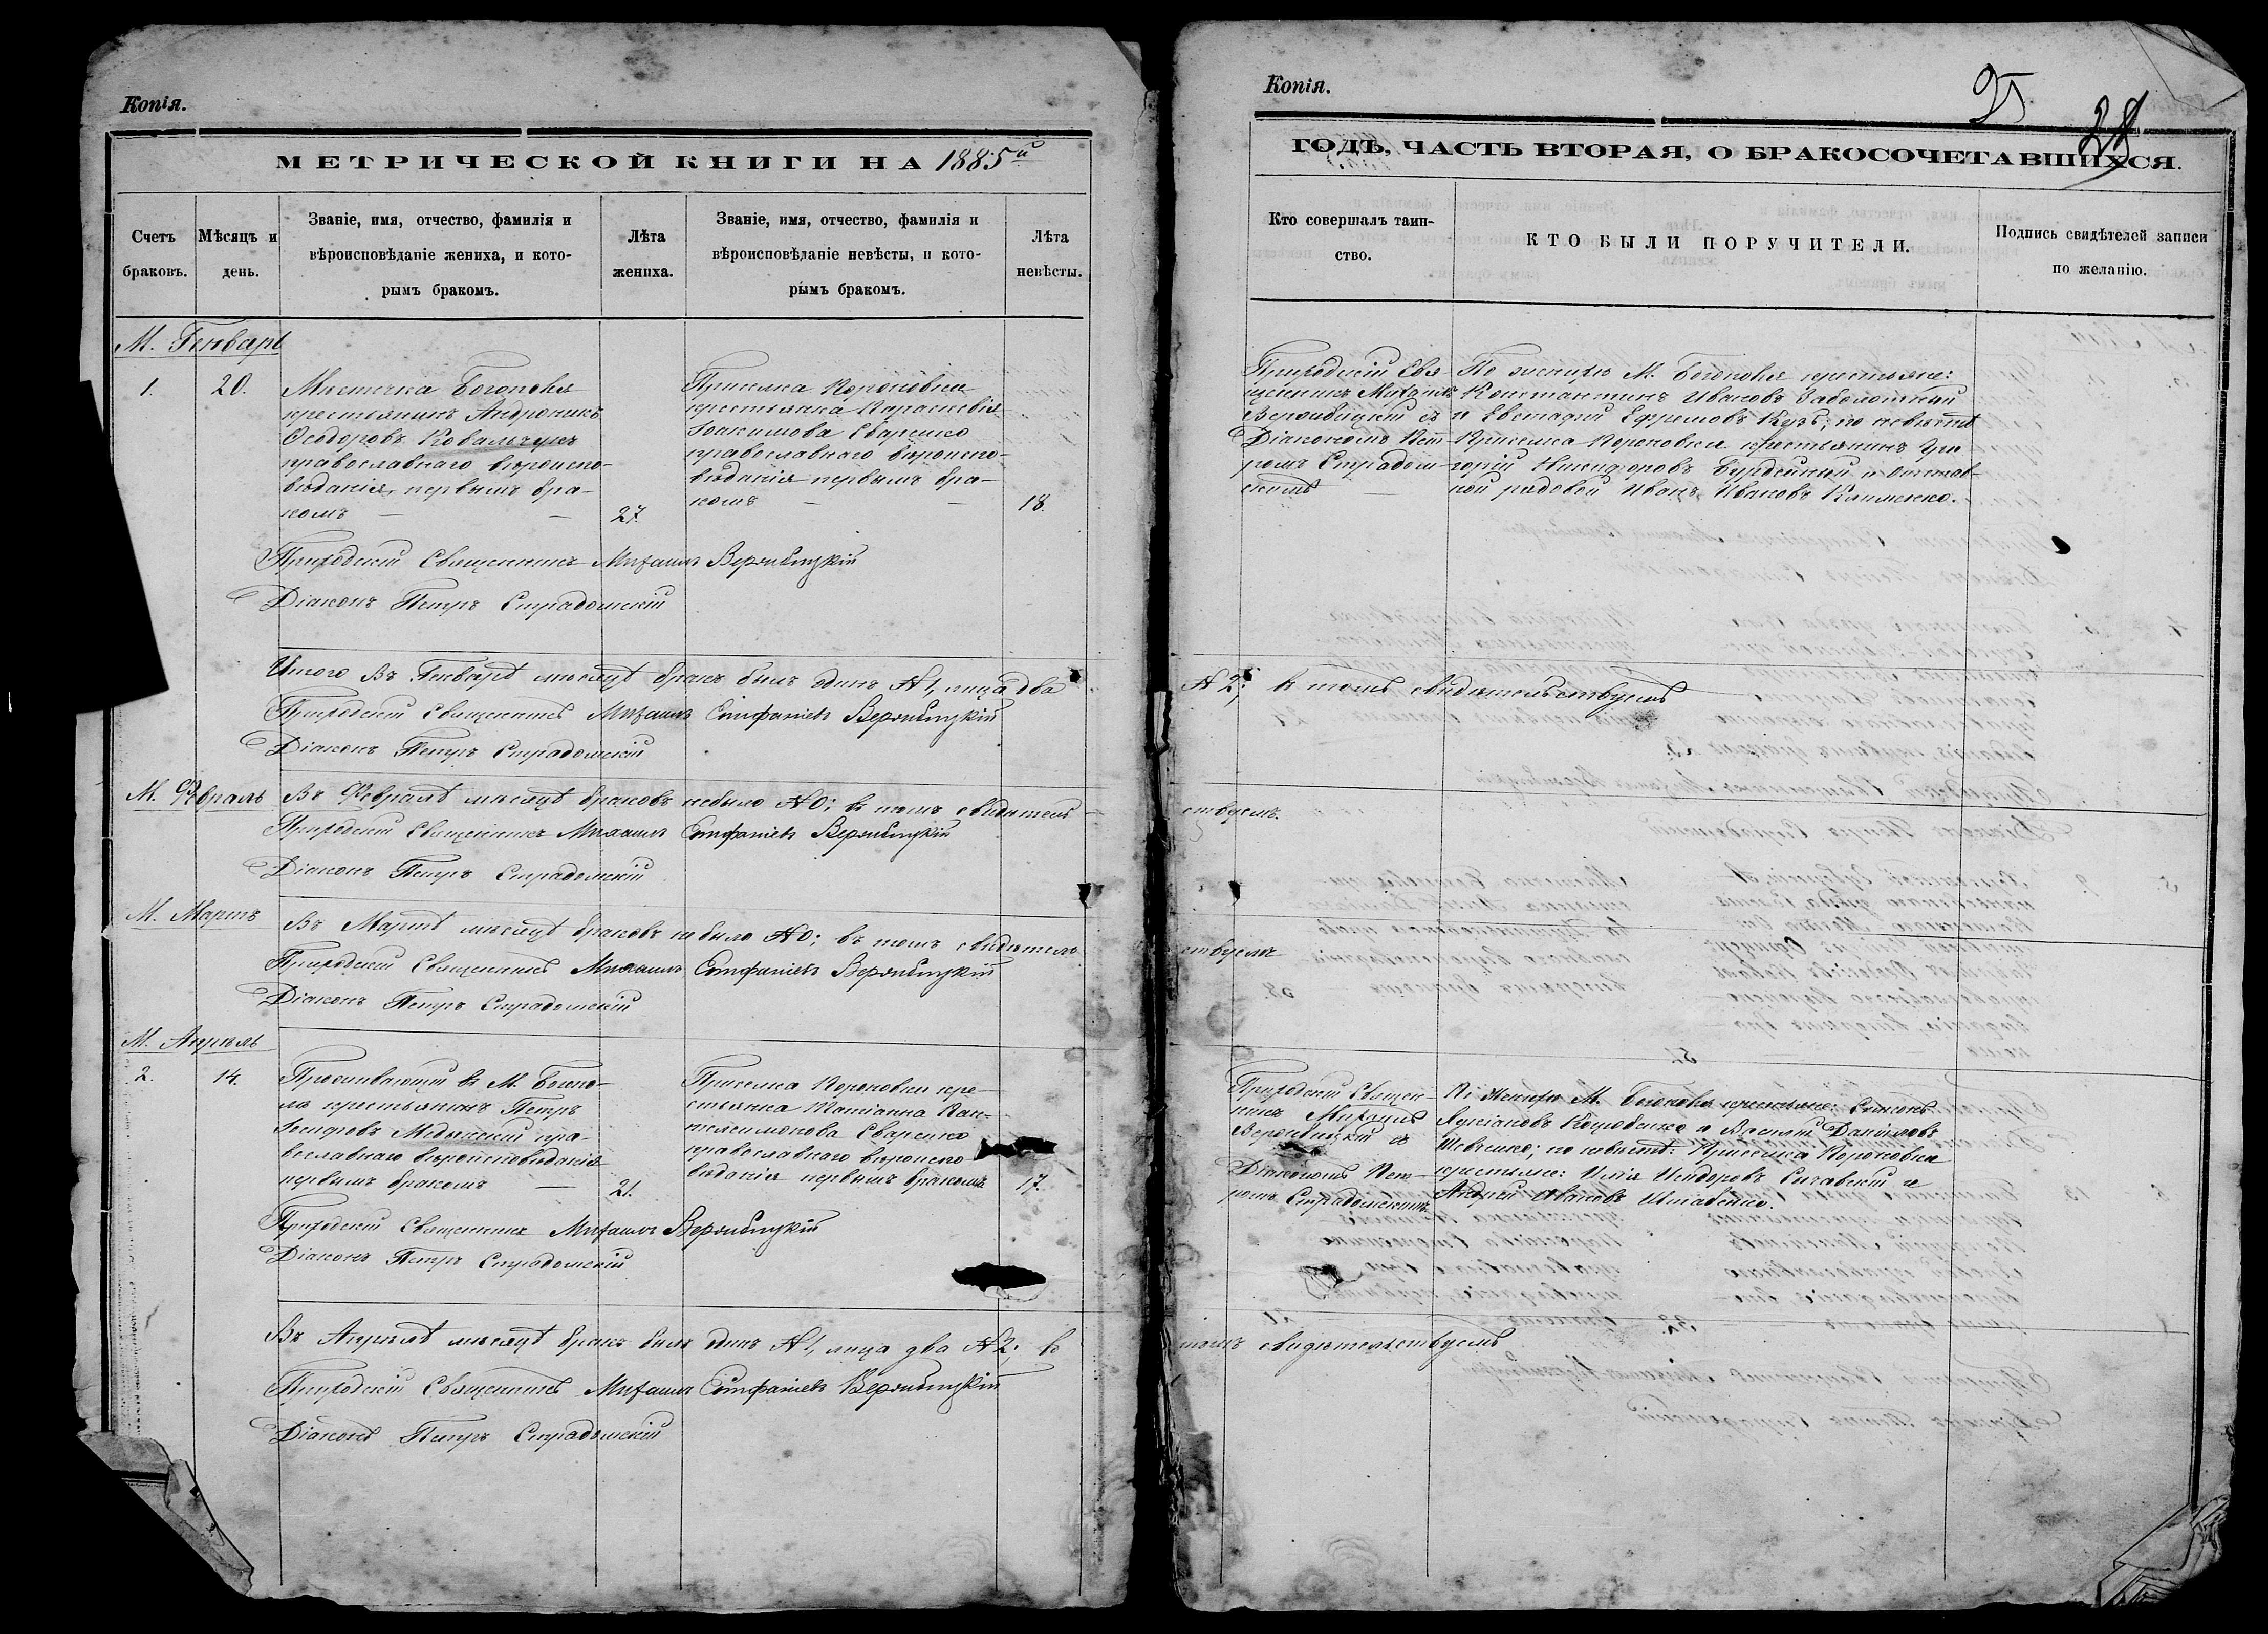 Копія.
МЕТРИЧЕСКОЙ КНИГИ НА 1885й
Счетъ браковъ.
Мѣсяцъ и день.
Званіе, имя, отчество, фамилія и
вѣроисповѣданіе жениха, и кото-
рымъ бракомъ.
Лѣта жениха.
Званіе, имя, отчество, фамилія и
вѣроисповѣданіе невѣсты, и кото-
рымъ бракомъ.
Лѣта невѣсты.
М. Генварь
1.
20.
Мѣстечка Богополя
крестьянинъ Андроникъ
Ѳеодоровъ Ковальчукъ
православнаго вѣроиспо-
вѣданія, первымъ бра-
комъ
27.
Приселка Короновки
крестьянка Параскевія
Іоакимова Сваренко
православнаго вѣроиспо-
вѣданія первымъ бра-
комъ
18.
Приходскій Священникъ Михаилъ Вержбицкій
Діаконъ Петръ Страдомскій
Итого въ Генварѣ мѣсяцѣ бракъ былъ одинъ № 1, лица два
Приходскій Священникъ Михаилъ Стефаніевъ Вержбицкій
Діаконъ Петръ Страдомскій
М. Февраль
Въ Февралѣ мѣсяцѣ браковъ небыло № 0; въ томъ свидѣтель-
Приходскій Священникъ Михаилъ Стефаніевъ Вержбицкій
Діаконъ Петръ Страдомскій
М. Мартъ
Въ Мартѣ мѣсяцѣ браковъ не было № 0; въ томъ свидѣтель-
Приходскій Священникъ Михаилъ Стефаніевъ Вержбицкій
Діаконъ Петръ Страдомскій
М. Апрѣль
2.
14.
Проживающій въ М. Богопо-
лѣ крестьянинъ Петръ
Іосифовъ пра-
вославнаго вѣроисповѣданія
первымъ бракомъ
21.
Приселка Короновки кре-
стьянка Татіанна Пан-
телеимонова Сваренко
православнаго вѣроиспо-
вѣданія первымъ бракомъ
17.
Приходскій Священникъ Михаилъ Вержбицкій
Діаконъ Петръ Страдомскій
Въ Апрѣлѣ мѣсяцѣ бракъ былъ одинъ № 1, лица два № 2; въ
Приходскій Священникъ Михаилъ Стефаніевъ Вержбицкій
Діаконъ Петръ Страдомскій
Копія.
25
28
ГОДЪ, ЧАСТЬ ВТОРАЯ, О БРАКОСОЧЕТАВШИХСЯ.
Кто совершалъ таин-
ство.
КТО БЫЛИ ПОРУЧИТЕЛИ.
Подпись свидѣтелей записи
по желанію.
Приходскій Свя-
щенникъ Михаилъ
Вержбицкій съ
Діакономъ Пет-
ромъ Страдом-
скимъ
По женихѣ М. Богополя крестьяне:
Константинъ Ивановъ Заболотный
и Евстафій Ефремовъ Кузь; по невѣстѣ
Приселка Короновки крестьянинъ Гри-
горій Никифоровъ Бурдейный и Отстав-
ной рядовой Иванъ Ивановъ Клименко.
№ 2; въ томъ свидѣтельствуемъ
ствуемъ.
ствуемъ
Приходскій Священ-
никъ Михаилъ
Вержбицкій съ
Діакономъ Пет-
ромъ Страдомскимъ
По женихѣ М. Богополя крестьяне: Симеонъ
Лукіановъ Коцюбенко и Василій Даніиловъ
Шевченко; по невѣстѣ: Приселка Короновки
крестьяне: Илія Исидоровъ и
Андрей Ивановъ
томъ свидѣтельствуемъ